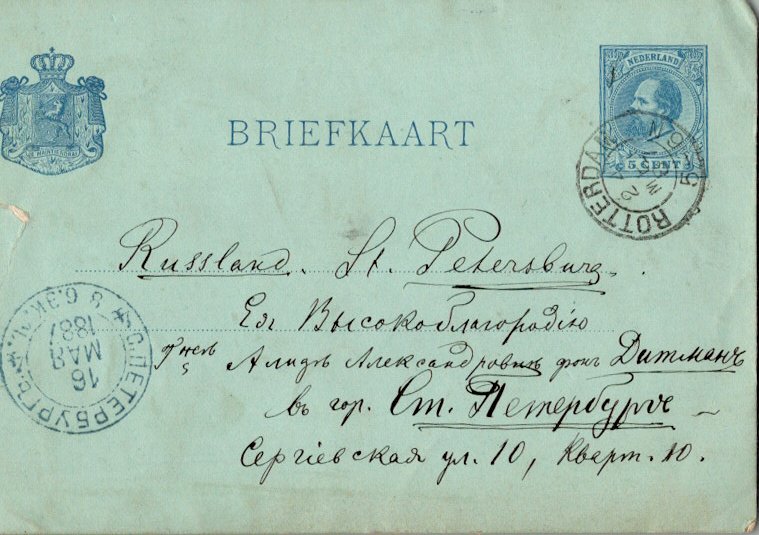 NEDERLAND
BRIEFKAART
5 CENT
ROTTERDAM
Russland. St. Petersburg.
Ея Высокоблагородію
Алидѣ Александровнѣ фонъ Дитманъ
въ гор. Ст. Петербургѣ
Сергіевская ул. 10, Кварт. 10.
С.ПЕТЕРБУРГЪ
16
МАЯ
1887